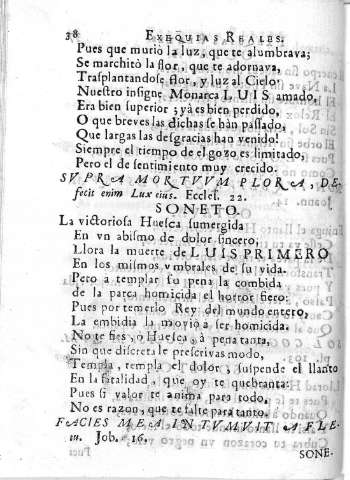 38 EXEQUIAS REALES.
Pues que muriò la luz, que te alumbrava;
Se marchitò la flor, que te adornava,
Trasplantandose flor, y luz al Cielo:
Nuestro insigne Monarca LUIS amado,
Era bien superior; yà es bien perdido,
O que breves las dichas se hàn passado,
Que largas las desgracias han venido!
Siempre el tiempo de el gozo es limitado;
Pero el de sentimiento muy crecido.
SUPRA MORTUUM PLORA, DE-
fecit enim Lux eius. Eccles. 22.
SONETO.
La victoriosa Huesca sumergida
En vn abismo de dolor sincero,
Llora la muerte de LUIS PRIMERO
En los mismos vmbrales de su vida.
Pero a templar su pena la combida
de la parca homicida el horror fiero:
Pues por temerlo Rey del mundo entero,
La embidia la moviò a ser homicida.
No te fies, ò Huesca, à pena tanta,
Sin que discreta le prescrivas modo,
Templa, templa el dolor, suspende el llanto
En la fatalidad, que oy te quebranta:
Pues si valor te anima para todo,
No es razon, que te falte para tanto.
FACIES MEA INTUMUIT A FLE-
tu. Job. 16.
SONE-